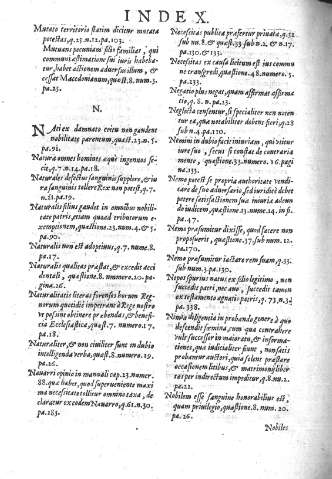 INDEX.
Mutato territorio statim dicitur mutata
potestas, q.25.n.12.pa.103.
Mutuans pecuniam filio familias, qui
communi æstimatione sui iuris habeba-
tur, habet actionem aduersus illum, &
cessat Macedonianum, quæst.8.num.5.
pa.25.
N.
NAti ex damnato coitu non gaudent
nobilitate parentum, quæst.23.n.5.
pa.91.
Natura omnes homines æqui ingenuos fe-
cit, q.7.n.14.pa.18.
Naturales defectus sanguinis supplere, & iu
ra sanguinis tollere Rex non potest, q.7.
n.21.pa.19.
Naturalis filius gaudet in omnibus nobili-
tate patris, etiam quoad tributorum ex-
exemptionem, quæstione.23.num.4.& 5.
pa.90.
Naturalis non est adoptiuus, q.7. nume.8.
pa.17.
Naturalis qualitas præstat, & excedit acci
dentali, quæstione.8. numero.20. pa-
gina.26.
Naturalitatis literas forenses horum Re-
gnorum quotidie impetrant à Rege nostro
vt possint obtinere præbendas, & benefi-
cia Ecclesiastica, quæst.7. numero.17.
pa.18.
Naturaliter, & non ciuiliter sunt in dubio
intelligenda verba, quæst.8.numero.19.
pa.26.
Nauarri opinio in manuali cap.23.numer.
88. quæ habet, quod superueniente maxi
ma necessitate tollitur amnino taxa, de
claratur ex eodem Nauarro, q.61.n.30.
pa.283.
Necessitas publica præfertur priuata, q.52
sub nu.8. & quæst.33 sub n.2. & n.17.
pa.130.& 133.
Necessitas ex causa licitum est ius commu
ne transgredi, quæstione.48.numero.5.
pa.233.
Negatio plus negat, quam affirmat affirma
tio, q.8.n.pa.23.
Neglecta censentur, si specialiter non nomen
tur ea, quæ notabiliter debent fieri, q.28
sub n.4.pa.110.
Nemini in dubio facit iniuriam, qui vtitur
iure suo, secus si constat de contraria
mente, quæstione.33.numero.16.pagi
na.135.
Nemo potest se propria authoritate vendi-
care de suo aduersario, sed iuridicè debet
petere satisfactionem sua iniuria adeun
do iudicem, quæstione.23.numero.14.in fi.
pa.47.
Nemo præsumitur dixisse, quod facere non
proposuerit, quæstione.37.sub num.12.
pa.170.
Nemo præsumitur iactare rem suam, q.33.
sub num.3.pa.130.
Nepos spurius natus ex filio legitimo, non
succedit patri, nec auo, succedit tamen
ex testamento agnatis patris, q.73.n.34
pa.338.
Nimia diligentia in probando genere à quo
descendit femina, cum qua contrahere
vult successor in maioratu, & informa-
tiones, quæ iudicialiter fiunt, non satis
probantur auctori, quia solent præstare
occasionem litibus, & matrimonij liber
tas per indirectum impeditur, q.8.nu.2.
pa.22.
Nobilem esse sanguine honorabilius est,
quam priuilegio, quæstione.8.num.20.
pa.26.
Nobiles